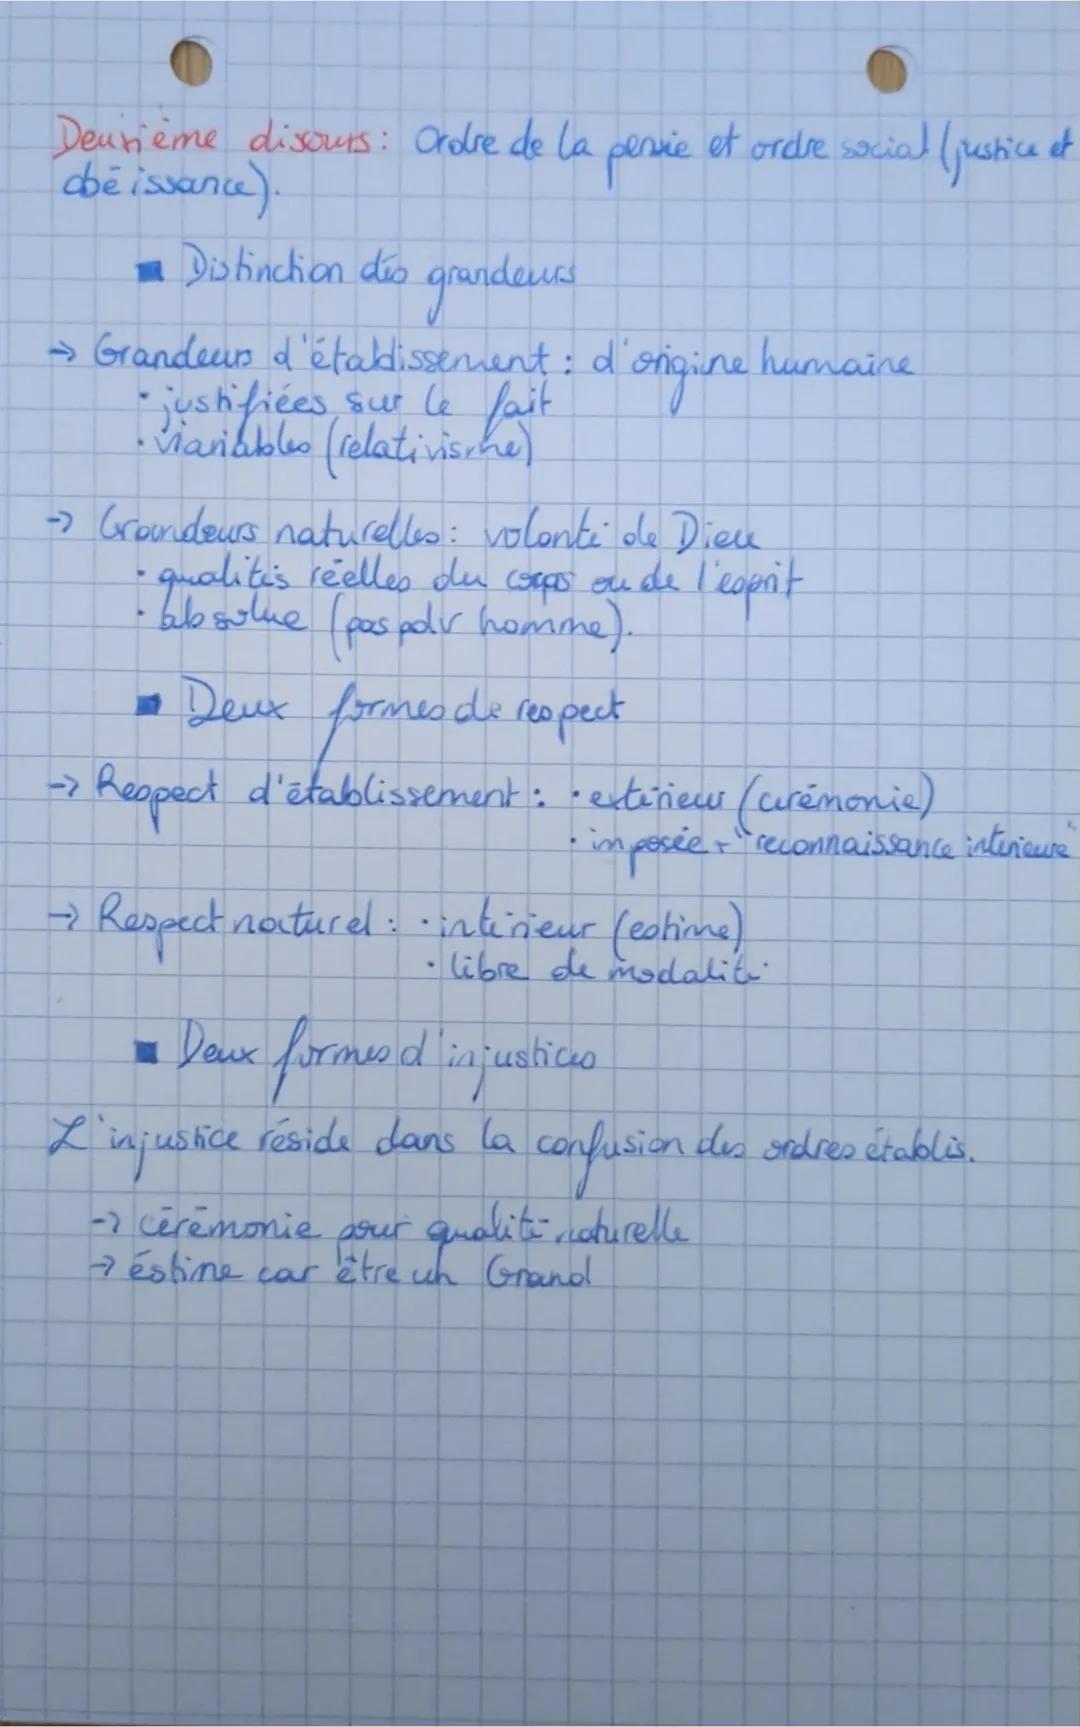 Deuxième discours: Ordre de la pensée et ordre social (justice et
obéissance).
■ Distinction des grandeurs
→ Grandeurs d'établissement : d'origine humaine
· justifiées sur le fait
· variables (relativisme)
→ Grandeurs naturelles : volonté de Dieu
· qualités réelles du corps ou de l'esprit
· absolue (pas pdv homme).
■ Deux formes de respect
→ Respect d'établissement : · extérieur (cérémonie)
· imposée + "reconnaissance intérieure"
→ Respect naturel : · intérieur (estime)
· libre de modalité
■ Deux formes d'injustices
L'injustice réside dans la confusion des ordres établis.
→ cérémonie pour qualité naturelle
→ éstime car être un Grand